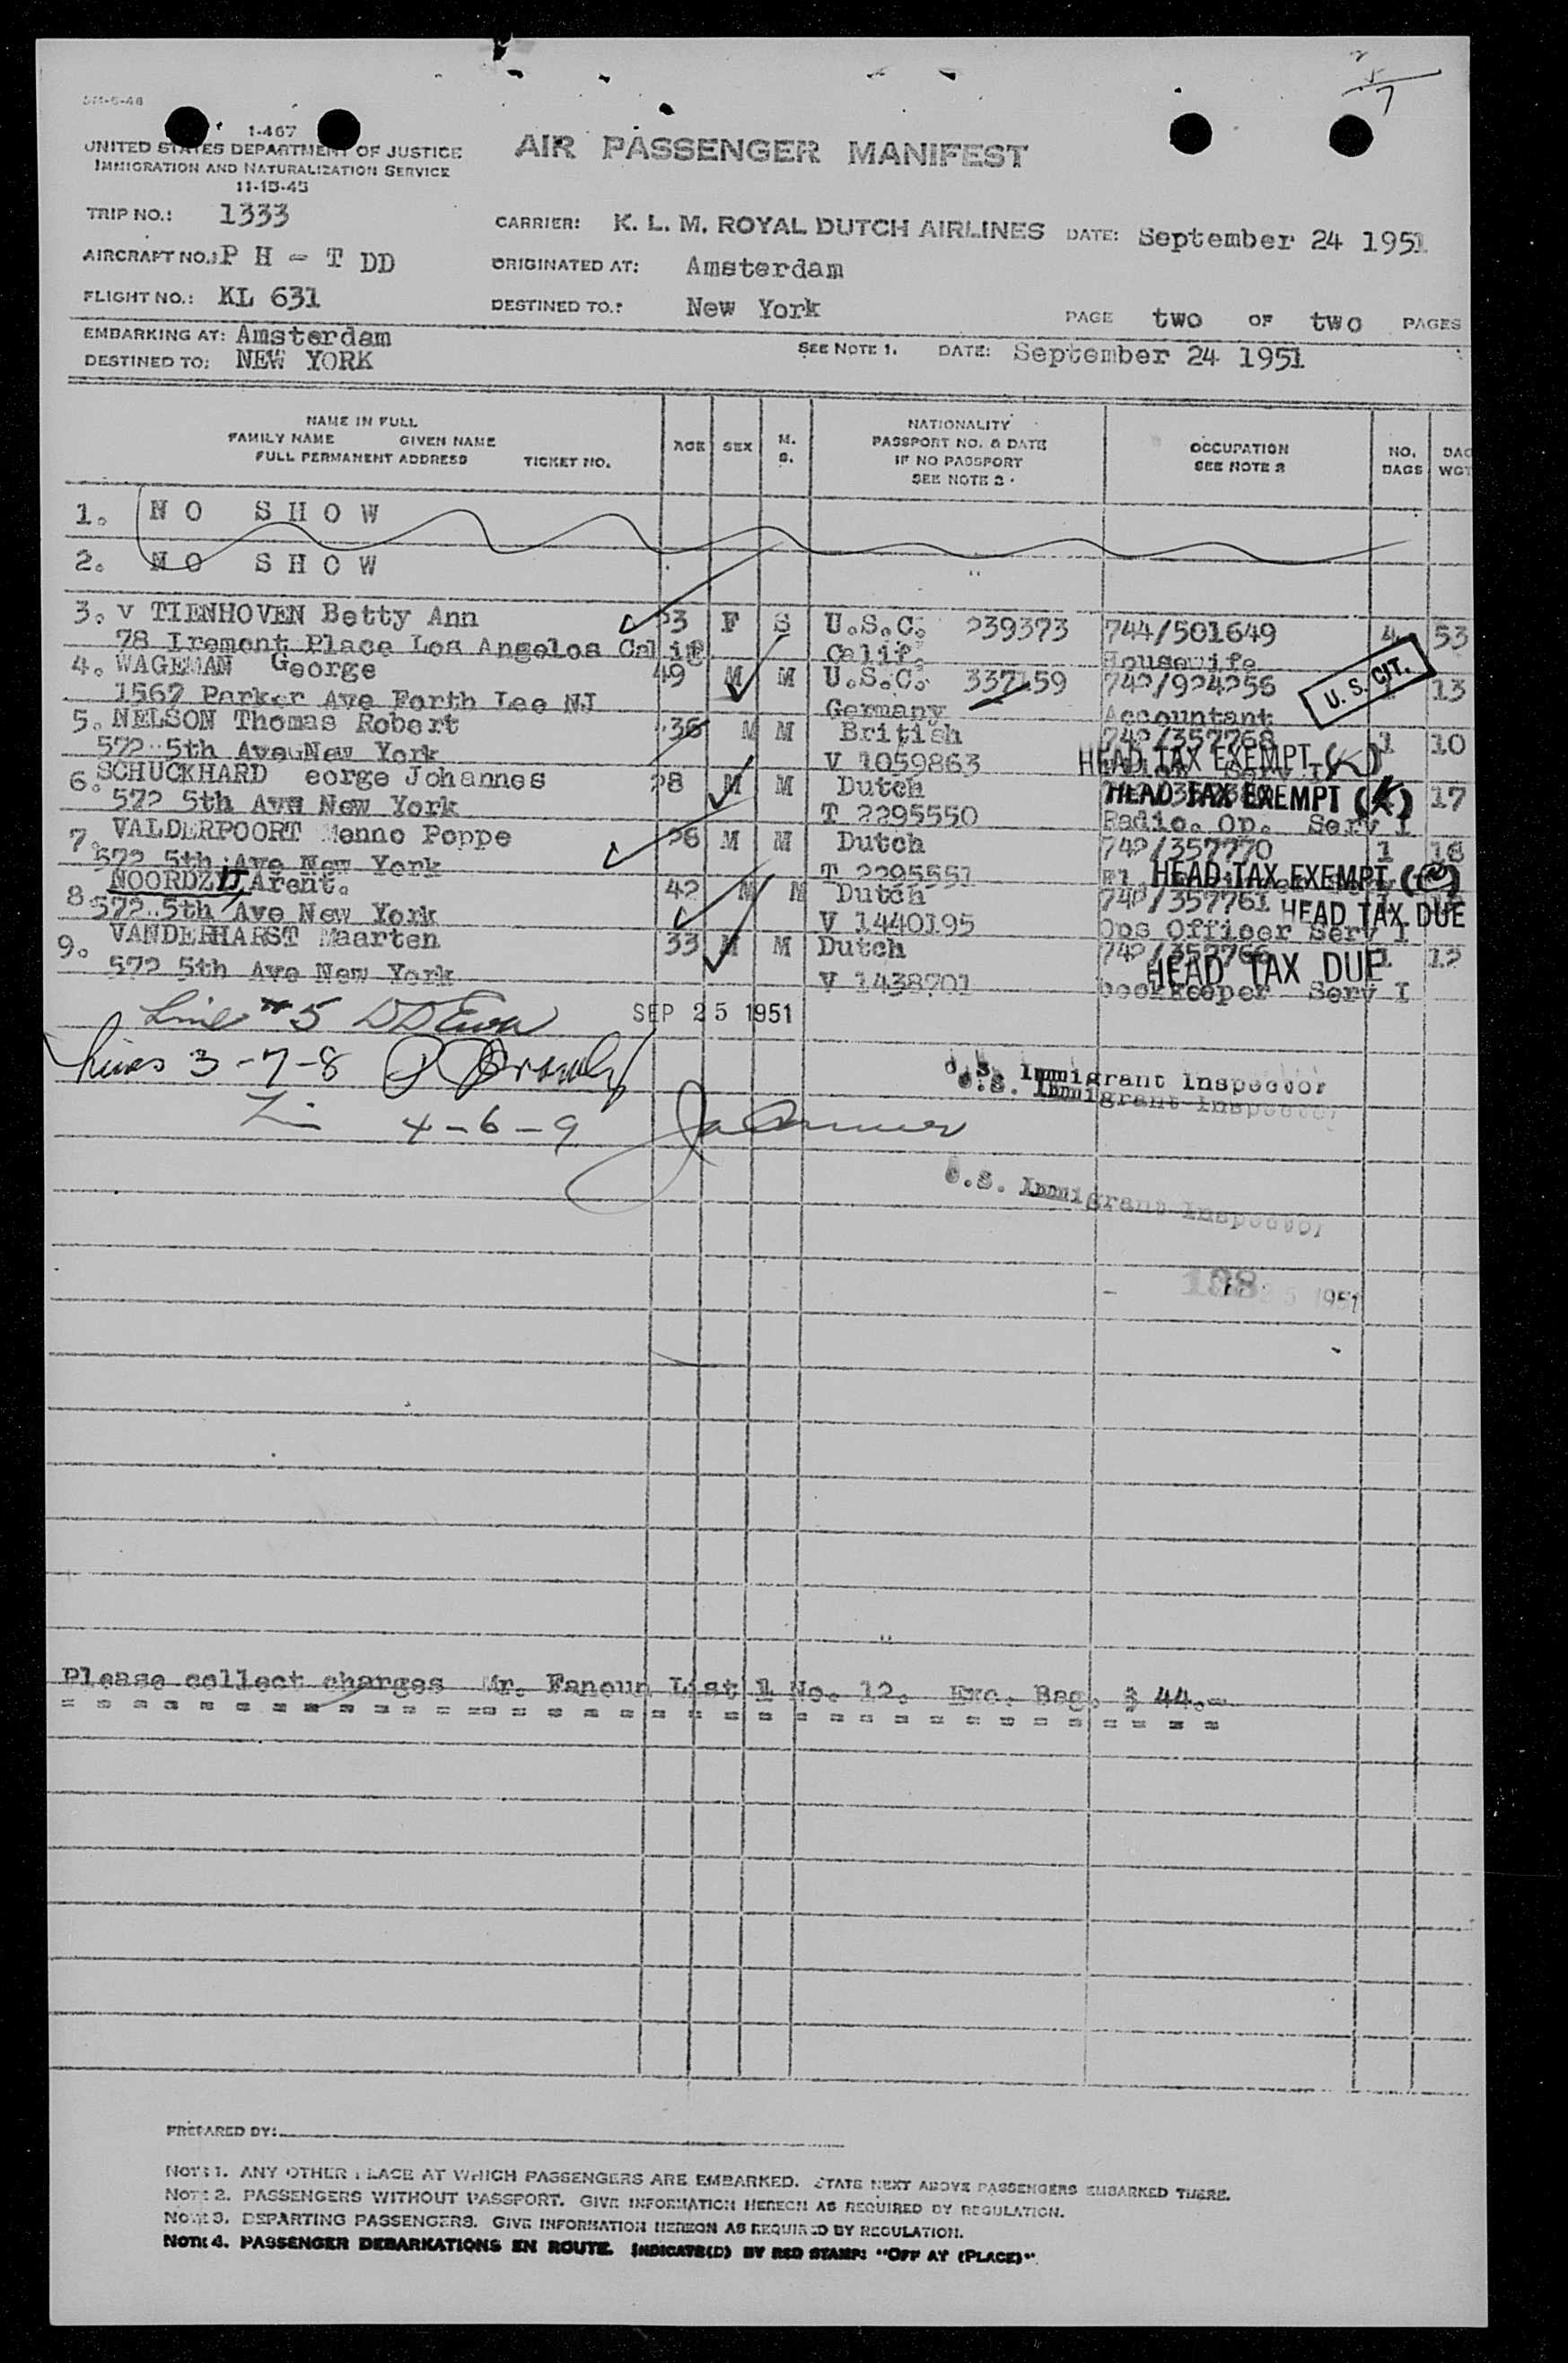 1-467
UNITED STATES DEPARTMENT OF JUSTICE
IMMIGRATION AND NATURALIZATION SERVICE
11-15-45
AIR PASSENGER MANIFEST
TRIP NO.: 1333
CARRIER: K. L. M. ROYAL DUTCH AIRLINES DATE: September 24 1951
AIRCRAFT NO.: P H - T DD
ORIGINATED AT: Amsterdam
FLIGHT NO.: KL 631
DESTINED TO.: New York
PAGE two OF two PAGES
EMBARKING AT: Amsterdam
SEE NOTE 1. DATE: September 24 1951
DESTINED TO: NEW YORK
NAME IN FULL
FAMILY NAME GIVEN NAME
FULL PERMANENT ADDRESS TICKET NO.
AGE SEX M. S.
NATIONALITY
PASSPORT NO. & DATE
IF NO PASSPORT
SEE NOTE 2
OCCUPATION
SEE NOTE 2
NO. BAGS
BAG WGT
1. NO SHOW
2. NO SHOW
3. v TIENHOVEN Betty Ann 23 F S U.S.C. 239373 744/501649 4 53
78 Iremont Place Los Angelos Calif. Calif. Housewife
4. WAGEMAN George 49 M M U.S.C. 337159 742/924256 13
U. S. CIT.
1567 Parker Ave Forth Lee NJ Germany Accountant
5. NELSON Thomas Robert 36 M M British 742/357768 1 10
572 5th Ave New York V 1059863
HEAD TAX EXEMPT (K)
6. SCHUCKHARD eorge Johannes 28 M M Dutch 17
HEAD TAX EXEMPT (K)
572 5th Ave New York T 2295550 Radio. Op. Serv I
7. VALDERPOORT Menno Poppe 28 M M Dutch 742/357770 1 18
572 5th Ave New York T 2295551
HEAD TAX EXEMPT
8. NOORDZIJ Arent. 42 M M Dutch 742/357761
HEAD TAX DUE
572 5th Ave New York V 1440195 Ops Officer Serv I
9. VANDERHARST Maarten 33 M M Dutch 742/357766 1 12
HEAD TAX DUE
572 5th Ave New York V 1438701 bookkeeper Serv I
Line #5
SEP 25 1951
Lines 3-7-8
U.S. Immigrant Inspector
U.S. Immigrant Inspector
4-6-9
U.S. Immigrant Inspector
1951
Please collect charges Mr. Fanoun List 1 No. 12. Exc. Bag. $ 44.-
PREPARED BY:
NOTE 1. ANY OTHER PLACE AT WHICH PASSENGERS ARE EMBARKED. STATE NEXT ABOVE PASSENGERS EMBARKED THERE.
NOTE 2. PASSENGERS WITHOUT PASSPORT. GIVE INFORMATION HEREON AS REQUIRED BY REGULATION.
NOTE 3. DEPARTING PASSENGERS. GIVE INFORMATION HEREON AS REQUIRED BY REGULATION.
NOTE 4. PASSENGER DEBARKATIONS EN ROUTE. INDICATE(D) BY RED STAMP: "OFF AT (PLACE)".